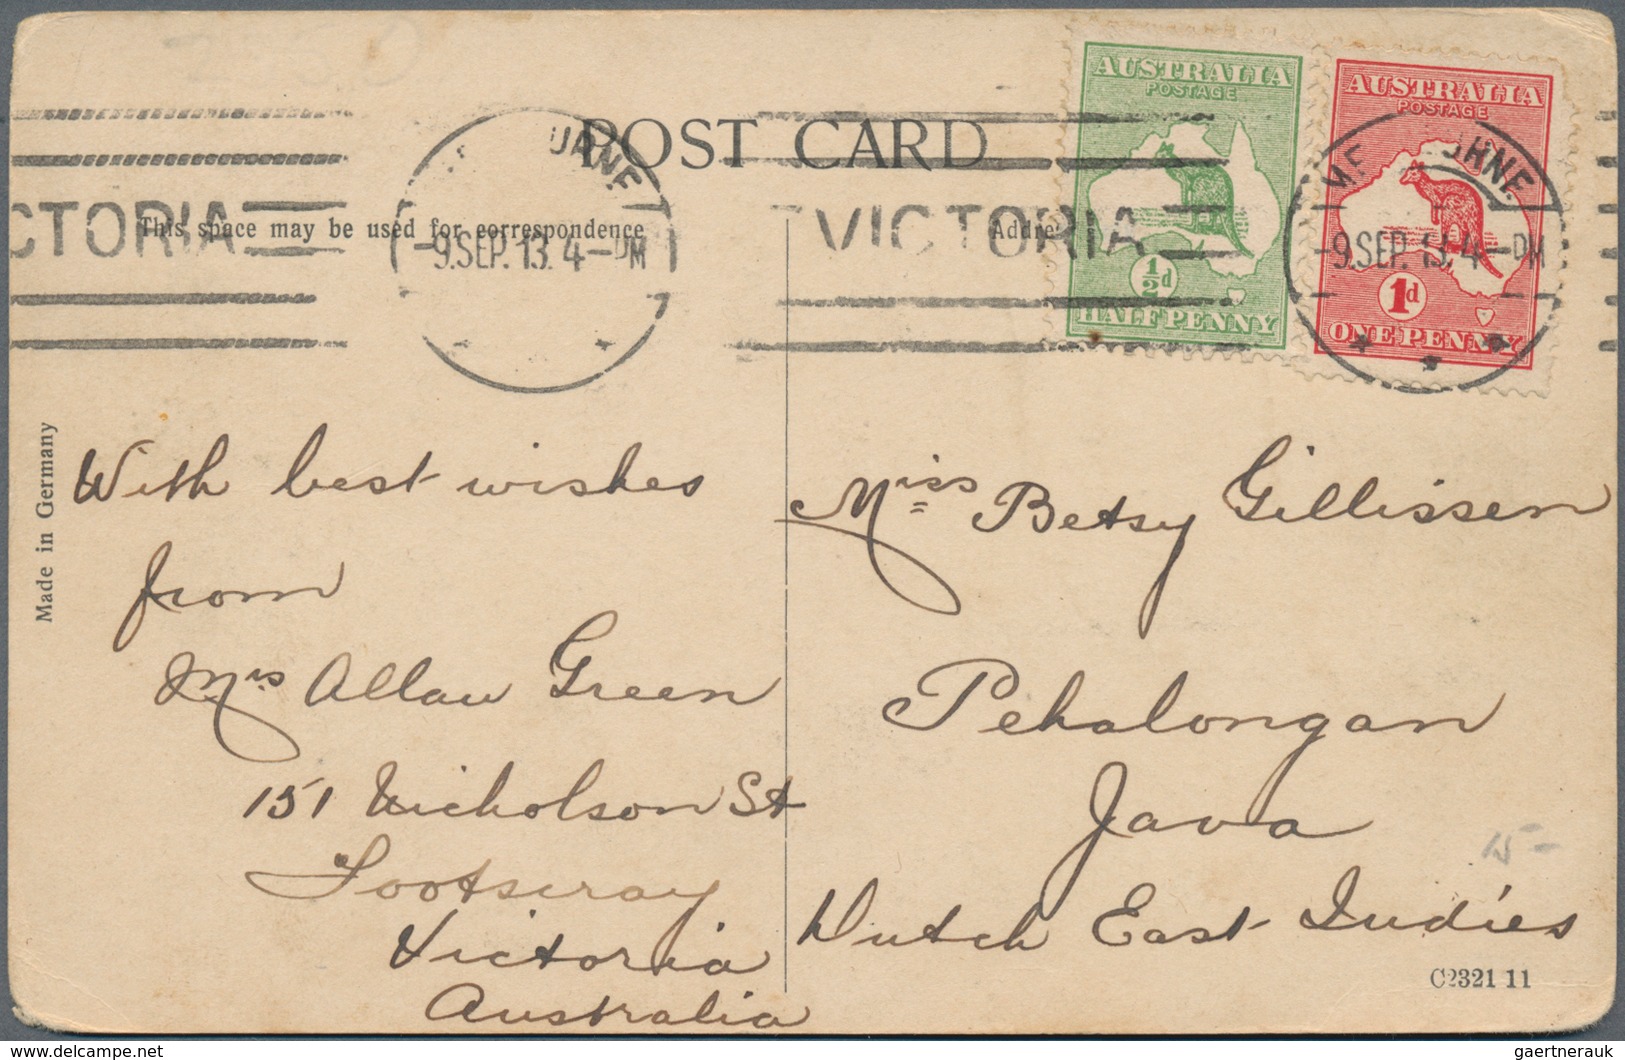 POST CARD
This space may be used for correspondence
Addre
AUSTRALIA
POSTAGE
½d
HALFPENNY
AUSTRALIA
POSTAGE
1d
ONE PENNY
CTORIA
URNE
-9.SEP.13.4-PM
VICTORIA
ME URNE
-9.SEP.13.4-PM
Made in Germany
With best wishes
from
Mrs Allan Green
151 Nicholson St
Footscray
Victoria
Australia
Miss Betsy Gillissen
Pekalongan
Java
Dutch East Indies
15-
C2321 11
www.delcampe.net
gaertnerauk